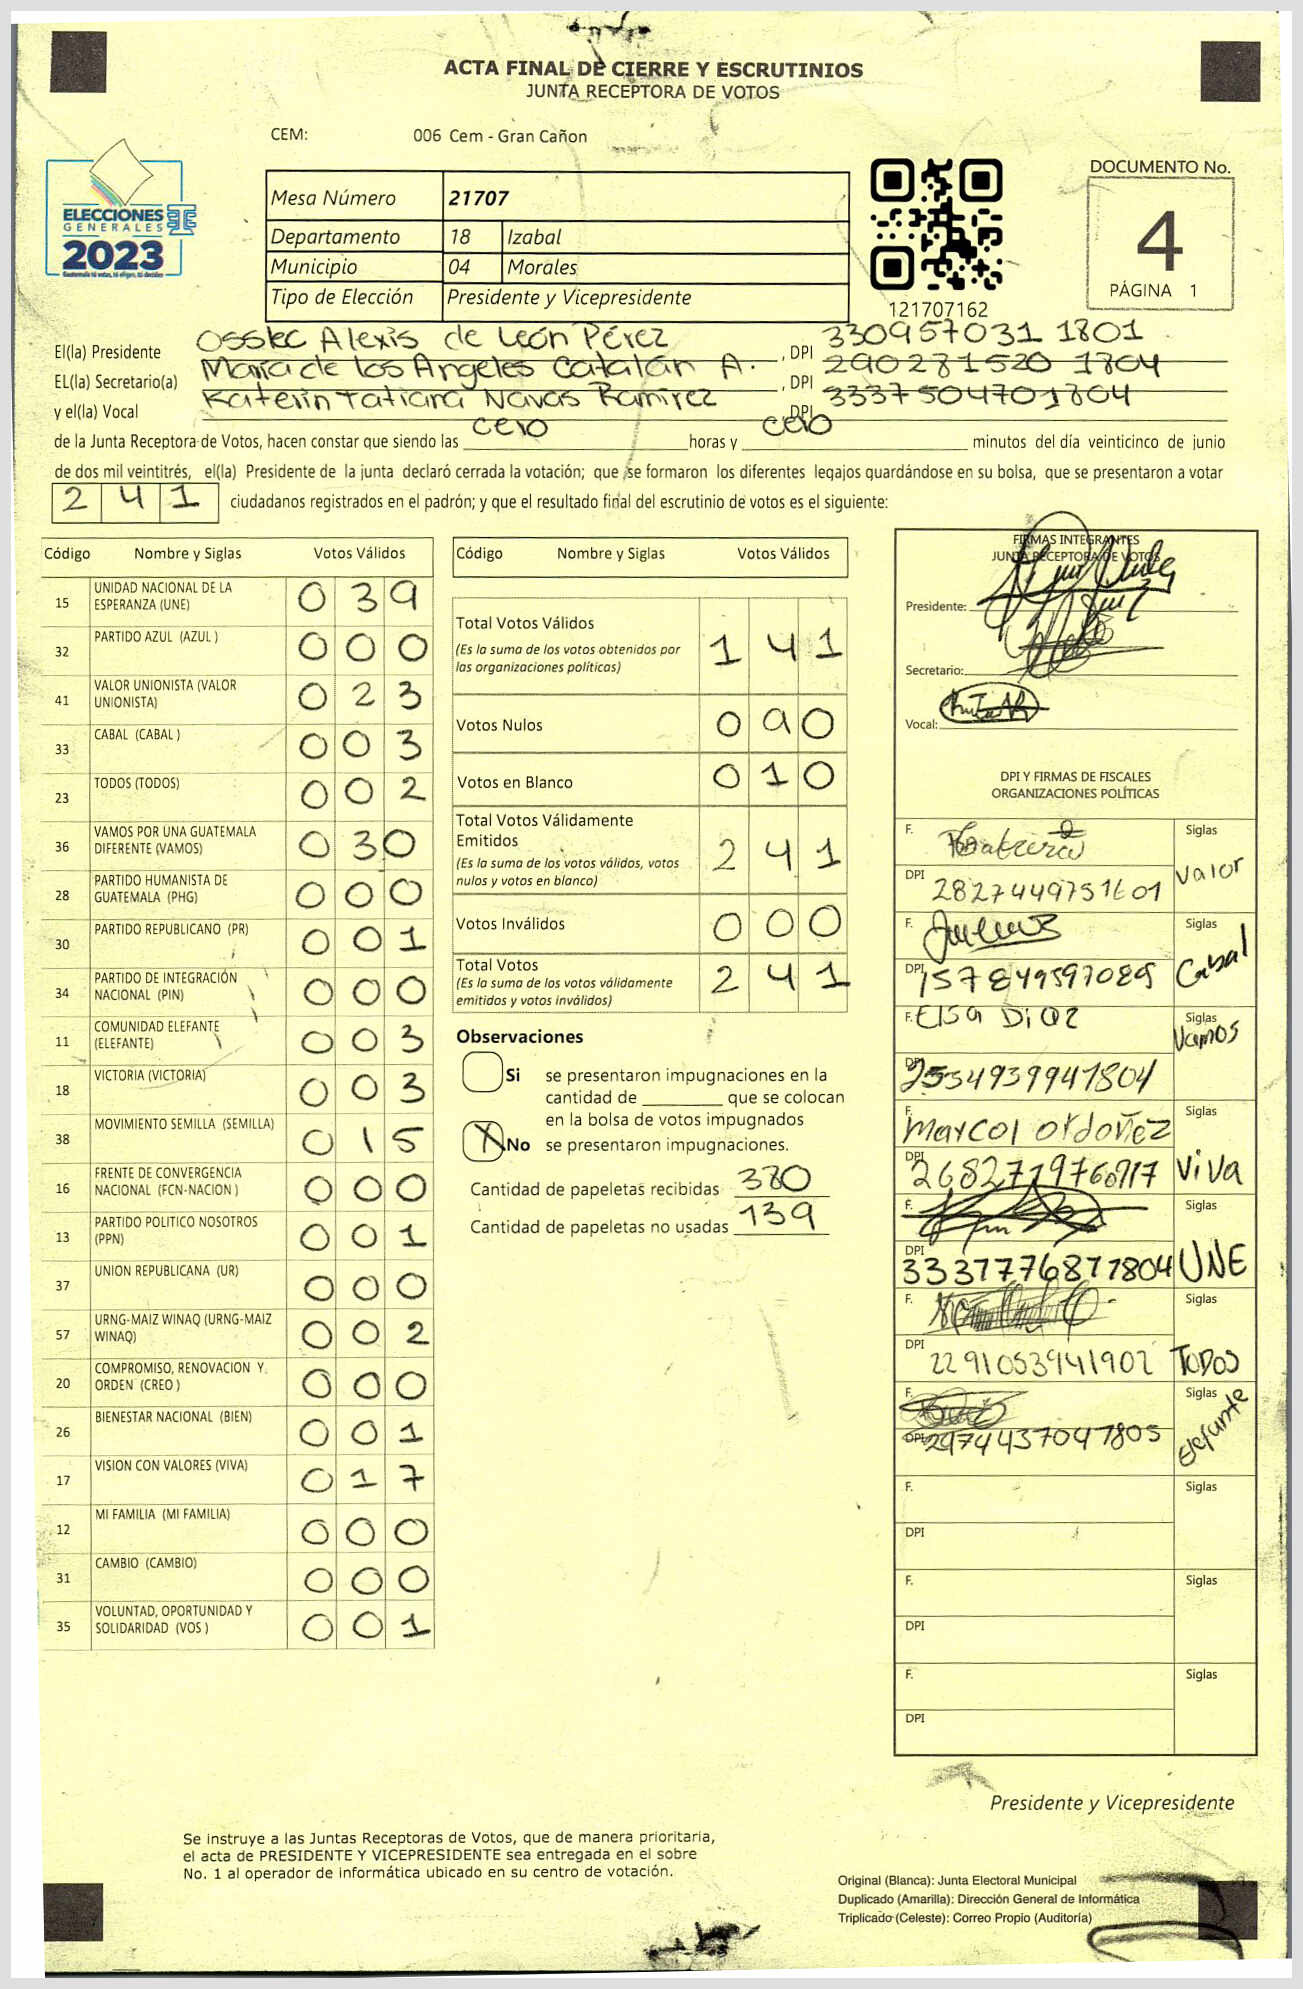 ACTA FINAL DE CIERRE Y ESCRUTINIOS
JUNTA RECEPTORA DE VOTOS
CEM: 006 Cem - Gran Cañon
ELECCIONES
GENERALES
2023
Guatemala tú votas, tú eliges, tú decides
Mesa Número 21707
Departamento 18 Izabal
Municipio 04 Morales
Tipo de Elección Presidente y Vicepresidente
121707162
DOCUMENTO No.
4
PÁGINA 1
El(la) Presidente Alexis de León Pérez , DPI 330957031 1801
EL(la) Secretario(a) María de los Angeles Catalán A. , DPI 290281520 1804
y el(la) Vocal Katerin Tatiana Navas Ramirez DPI 3337504701804
de la Junta Receptora de Votos, hacen constar que siendo las cero horas y cero minutos del día veinticinco de junio
de dos mil veintitrés, el(la) Presidente de la junta declaró cerrada la votación; que se formaron los diferentes legajos guardándose en su bolsa, que se presentaron a votar
241 ciudadanos registrados en el padrón; y que el resultado final del escrutinio de votos es el siguiente:
Código Nombre y Siglas Votos Válidos
15 UNIDAD NACIONAL DE LA ESPERANZA (UNE) 039
32 PARTIDO AZUL (AZUL ) 000
41 VALOR UNIONISTA (VALOR UNIONISTA) 023
33 CABAL (CABAL ) 003
23 TODOS (TODOS) 002
36 VAMOS POR UNA GUATEMALA DIFERENTE (VAMOS) 030
28 PARTIDO HUMANISTA DE GUATEMALA (PHG) 000
30 PARTIDO REPUBLICANO (PR) 001
34 PARTIDO DE INTEGRACIÓN NACIONAL (PIN) 000
11 COMUNIDAD ELEFANTE (ELEFANTE) 003
18 VICTORIA (VICTORIA) 003
38 MOVIMIENTO SEMILLA (SEMILLA) 015
16 FRENTE DE CONVERGENCIA NACIONAL (FCN-NACION ) 000
13 PARTIDO POLITICO NOSOTROS (PPN) 001
37 UNION REPUBLICANA (UR) 000
57 URNG-MAIZ WINAQ (URNG-MAIZ WINAQ) 002
20 COMPROMISO, RENOVACION Y ORDEN (CREO ) 000
26 BIENESTAR NACIONAL (BIEN) 001
17 VISION CON VALORES (VIVA) 017
12 MI FAMILIA (MI FAMILIA) 000
31 CAMBIO (CAMBIO) 000
35 VOLUNTAD, OPORTUNIDAD Y SOLIDARIDAD (VOS ) 001
Código Nombre y Siglas Votos Válidos
Total Votos Válidos 141
(Es la suma de los votos obtenidos por
las organizaciones políticas)
Votos Nulos 090
Votos en Blanco 010
Total Votos Válidamente
Emitidos 241
(Es la suma de los votos válidos, votos
nulos y votos en blanco)
Votos Inválidos 000
Total Votos 241
(Es la suma de los votos válidamente
emitidos y votos inválidos)
Observaciones
Si se presentaron impugnaciones en la
cantidad de ________ que se colocan
en la bolsa de votos impugnados
X No se presentaron impugnaciones.
Cantidad de papeletas recibidas 380
Cantidad de papeletas no usadas 139
FIRMAS INTEGRANTES
JUNTA RECEPTORA DE VOTOS
Presidente:
Secretario:
Vocal:
DPI Y FIRMAS DE FISCALES
ORGANIZACIONES POLÍTICAS
F. Siglas
DPI 2827449751601 Valor
F. Siglas
DPI Cabal
F. Elsa Diaz Siglas
DPI 2534939941804 Vamos
F. Marcol Ordoñez Siglas
DPI Viva
F. Siglas
DPI 3337776871804 UNE
F. Siglas
DPI 2291053941902 TODOS
F. Siglas
DPI 2974437041805 Elefante
F. Siglas
DPI
F. Siglas
DPI
F. Siglas
DPI
Presidente y Vicepresidente
Se instruye a las Juntas Receptoras de Votos, que de manera prioritaria,
el acta de PRESIDENTE Y VICEPRESIDENTE sea entregada en el sobre
No. 1 al operador de informática ubicado en su centro de votación.
Original (Blanca): Junta Electoral Municipal
Duplicado (Amarilla): Dirección General de Informática
Triplicado (Celeste): Correo Propio (Auditoría)